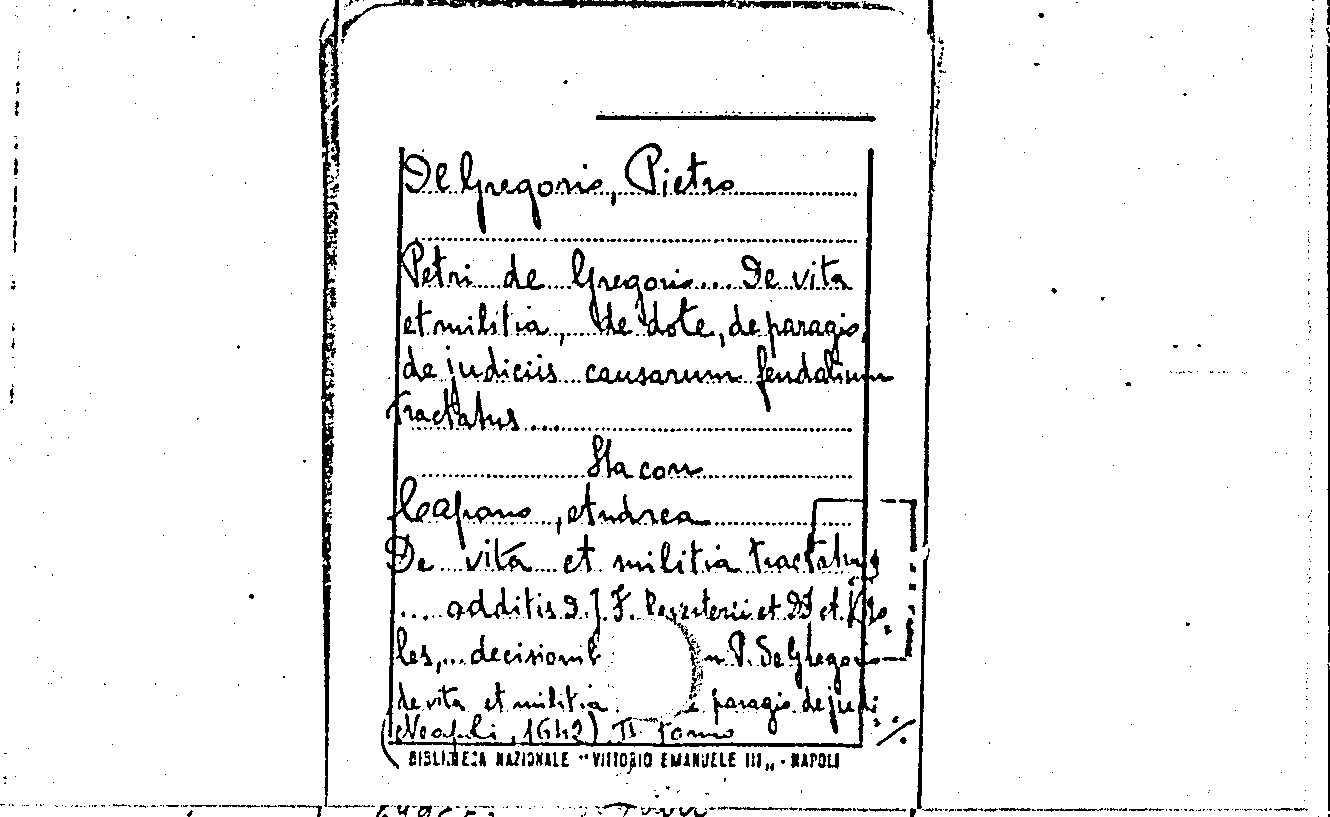 De Gregorio, Pietro
Petri de Gregorio... De vita
et militia, de dote, de paragio,
de judiciis causarum feudalium
tractatus ...
Sta con
Capano, Andrea
De vita et militia tractatus
... additis D. J. F. et
les,... decision P. De Gregorio
de vita et militia paragio de judi
(Neapoli, 1642) II tomo
BIBLIOTECA NAZIONALE "VITTORIO EMANUELE III" - NAPOLI